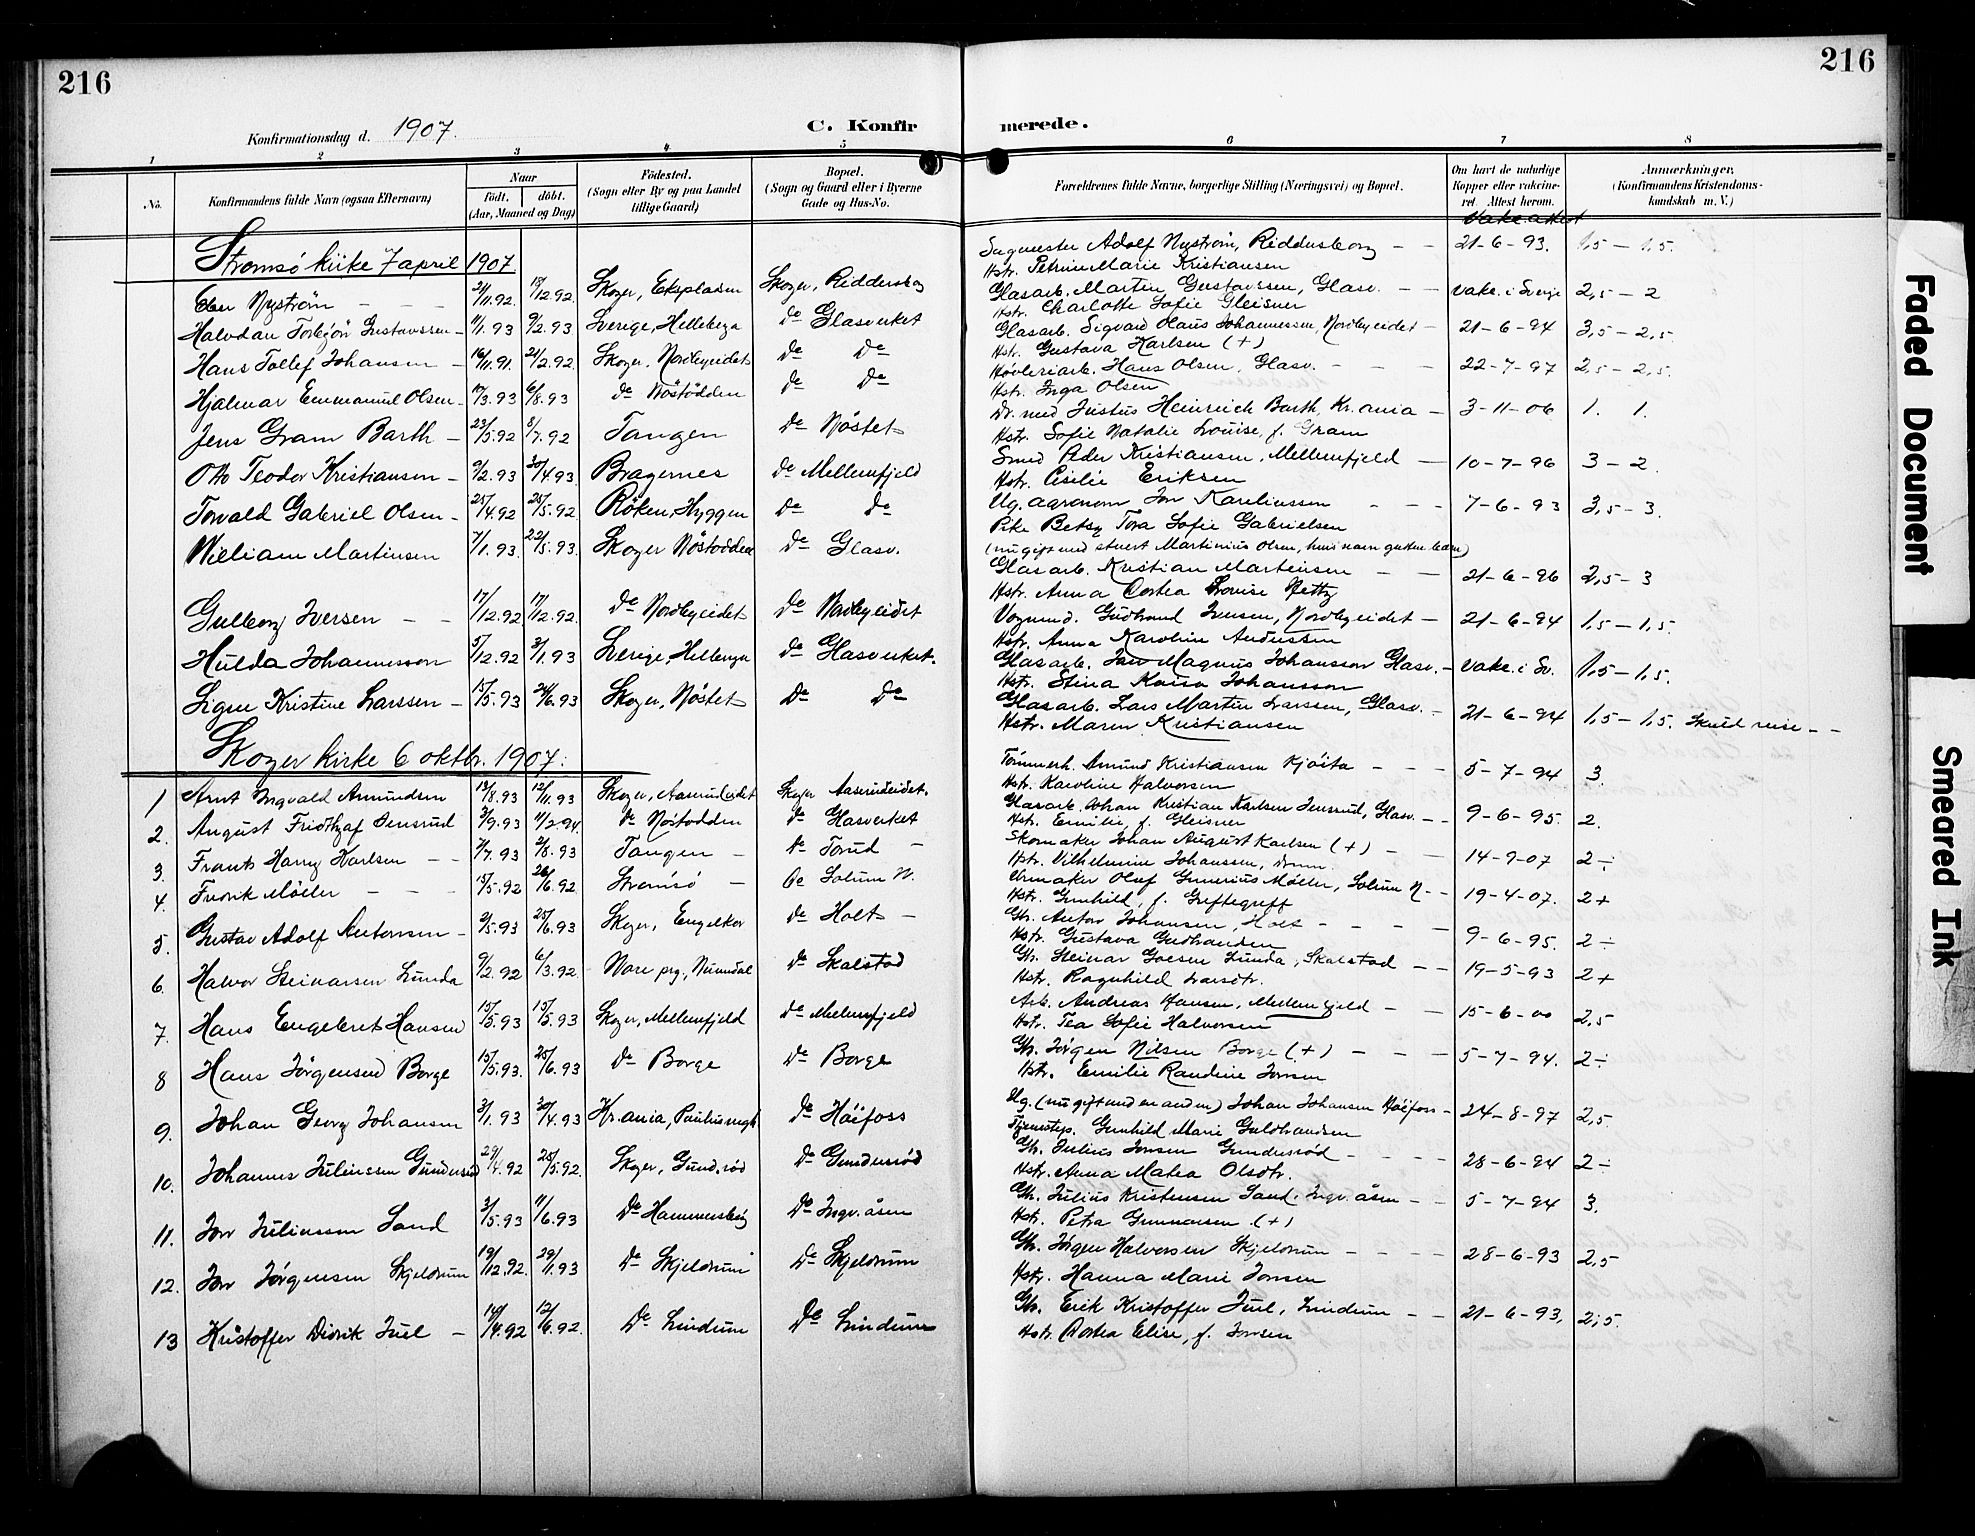 216
216
Konfirmationsdag d. 1907.
C. Konfirmerede.
1 2 3 4 5 6 7 8
No.
Konfirmandens fulde Navn (ogsaa Efternavn)
Naar
født. døbt.
(Aar, Maaned og Dag)
Fødested.
(Sogn eller By og paa Landet
tillige Gaard)
Bopæl.
(Sogn og Gaard eller i Byerne
Gade og Hus-No.
Forældrenes fulde Navne, borgerlige Stilling (Næringsvei) og Bopæl.
Om havt de naturlige
Kopper eller vakcine-
ret. Attest herom.
Vakc. attest
Anmærkninger,
(Konfirmandens Kristendoms-
kundskab m. V.)
Strømsø kirke 7 april 1907
Nystrøm 21/11.92 /12.92 Skoger, Ekspladsen Skoger, Riddersborg
Adolf Nystrøm, Riddersborg 21-6-93. 1,5 - 1,5.
Hstr. Petrine Marie Kristiansen
Halvdan Torbjørn Gustavssen 11/1.93 9/2.93 Sverige, Helleberga do Glasverket
Glasarb. Martin Gustavssen, Glasv. vakc. i Sverige 2,5 - 2
Hstr. Charlotte Sofie Gleisner
Hans Tollef Johansen 16/11.91 21/2.92 Skoger, Nordbyeidet do do
Glasarb. Sigvard Hans Johannessen, Nordbyeidet 21-6-94 3,5 - 2,5.
Hstr. Gustava Karlsen (+)
Hjalmar Emmanuel Olsen 17/3.93 6/8.93 do Nøstodden do do
Høvleriarb. Hans Olsen, Glasv. 22-7-97 2,5 - 2,5.
Hstr. Inga Olsen
Jens Gram Barth 23/5.92 8/7.92 Tangen do Nøstet
Dr. med Justus Heinrich Barth, Kr.ania 3-11-06 1. 1.
Hstr. Sofie Natalie Louise, f. Gram
Otto Teodor Kristiansen 9/2.93 30/4.93 Bragernes do Mellemfjeld
Smed Peder Kristiansen, Mellemfjeld 10-7-96 3 - 2.
Hstr. Cisilie Eriksen
Torvald Gabriel Olsen 25/4.92 25/5.92 Røken, Hyggen do do
Ug. agronom Jon Kareliussen 7-6-93 3,5 - 3.
Pike Betsy Tora Sofie Gabrielsen
(nu gift med stuert Martinius Olsen, hvis navn gutten bærer)
William Martinsen 7/1.93. 22/5.93. Skoger Nøstodden do Glasv.
Glasarb. Kristian Martinsen 21-6-96 2,5 - 3
Hstr. Anna Dortea Lovise
Gulborg Iversen 17/12.92 17/12.92. do Nordbyeidet do Nordbyeidet
Vognmd. Gudbrand Iversen, Nordbyeidet 21-6-94 1,5 - 1,5.
Hstr. Anna Karoline Anderssen
Hulda Johannesson 5/12.92 3/1.93 Sverige, Helleberga do Glasverket.
Glasarb. Magnus Johansson Glasv. vakc. i Sv. 1,5 - 1,5.
Hstr. Stina Kaisa Johansson
Signe Kristine Larssen 15/5.93 24/6.93 Skoger, Nøstet do do
Glasarb. Lars Martin Larssen, Glasv. 21-6-94 1,5 - 1,5. Skuld reise
Hstr. Maren Kristiansen
Skoger kirke 6 oktbr. 1907.
1 Arnt Ingvald Amundsen 13/8.93 12/11.93 Skoger, Aaserudeidet Skoger Aaserudeidet.
Tømmerh. Amund Kristiansen Kjøita 5-7-94 3.
Hstr. Karoline Halvorsen
2. August Fridthjof Jensrud 3/9.93 11/2.94. do Nøstodden do Glasverket
Glasarb. Johan Kristian Karlsen Jensrud, Glasv. 9-6-95. 2.
Hstr. Emilie, f. Gleisner
3. Frants Harry Karlsen 7/7.93 2/8.93 Tangen do Torud
Skomaker Johan August Karlsen (+) 14-9-07 2÷
Hstr. Vilhelmine Johanssen,
4. Fredrik Møller 15/5.92 26/6.92 Strømsø do Solum N.
Urmaker Olaf Gunerius Møller, Solum N. 19-4-07. 2+
Hstr. Gunhild, f. Greftegreff
5. Gustav Adolf Antonsen 9/5.93 25/6.93 Skoger, Engelkor do Holt
Gbr. Anton Johansen, Holt 9-6-95. 2÷
Hstr. Gustava Gulbransen
6. Halvor Steinarsen Lunda 9/2.92 6/3.92 Nore prg, Numdal do Skalstad
Gbr. Steinar Lunda, Skalstad 19-5-93 2+
Hstr. Ragnhild Larsdtr.
7. Hans Engebret Hansen 15/5.93 15/5.93 Skoger, Mellemfjeld do Mellemfjeld
Arb. Andreas Hansen, Mellemfjeld 15-6-00 2,5
Hstr. Tea Sofie Halvorsen
8 Hans Jørgensen Borge 15/5.93. 25/6.93 do Borge do Borge
Gbr. Jørgen Nilsen Borge (+) 5-7-94. 2÷
Hstr. Emilie Randine Jonsen
9. Johan Georg Johansen 3/1.93 30/4.93 Kr.ania, Paulusmgh do Høifoss
Ug. (nu gift med en anden) Johan Johansen Høifoss 24-8-97 2,5
Tjenestep. Gunhild Marie Guldbrandsen
10. Johannes Juliussen Gundersrud 29/4.92 25/5.92. Skoger, Gunds.rød do Gundersrød
Gbr. Julius Jonsen Gundersrød 28-6-94 2÷
Hstr. Anna Matea Olsdtr.
11. Jon Juliussen Sand 3/5.93 11/6.93 do Hammersborg do Ingv.åsen
Gbr. Julius Kristensen Sand, Ingv.åsen 5-7-94 3.
Hstr. Petra Gunnarsen (+)
12. Jon Jørgensen Skjeldrum 19/12.92. 29/1.93 do Skjeldrum do Skjeldrum
Gbr. Jørgen Halvorsen Skjeldrum 28-6-93 2,5
Hstr. Hanna Marie Jonsen
13 Kristoffer Didrik Juel 14/4.92 12/6.92. do Lindum do Lindum
Gbr. Erik Kristoffer Juel, Lindum 21-6-93, 2,5.
Hstr. Dortea Elise, f. Jonsen
Faded Document
Smeared Ink